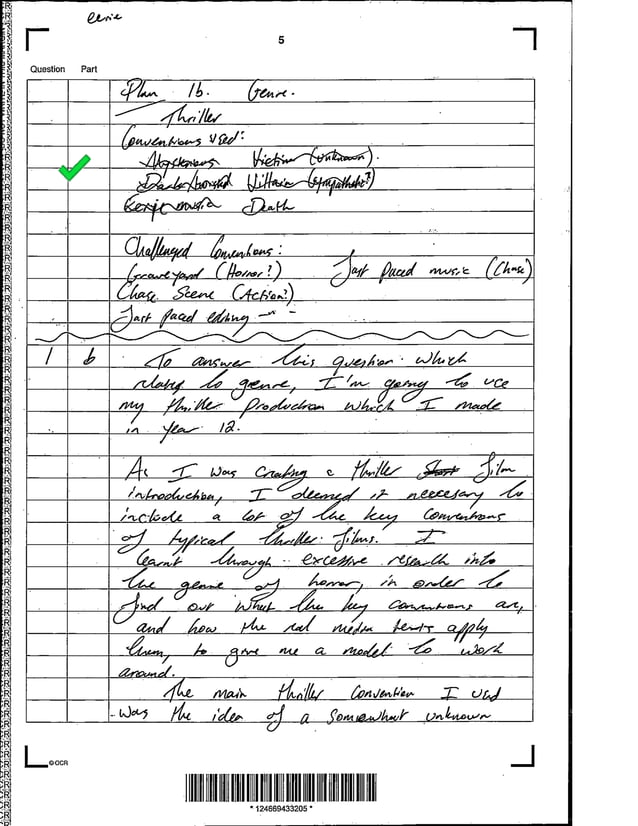 eerie
5
Question Part
Plan 1b. Genre.
Thriller
Conventions used:
Mysterious Victim (unknown).
Villain (sympathetic?)
Eerie music Death
Challenged Conventions:
Graveyard (Horror?) Fast paced music (Chase)
Chase Scene (Action?)
Fast paced editing —"—
1 b To answer this question which
relates to genre, I'm going to use
my thriller production which I made
in year 12.
As I was creating a thriller film
introduction, I deemed it necessary to
include a lot of the key conventions
of typical thriller films. I
learnt through excessive research into
the genre of horror, in order to
find out what the key conventions are,
and how the real media texts apply
them, to give me a model to work
around.
The main thriller convention I used
was the idea of a somewhat unknown
© OCR
* 124669433205 *